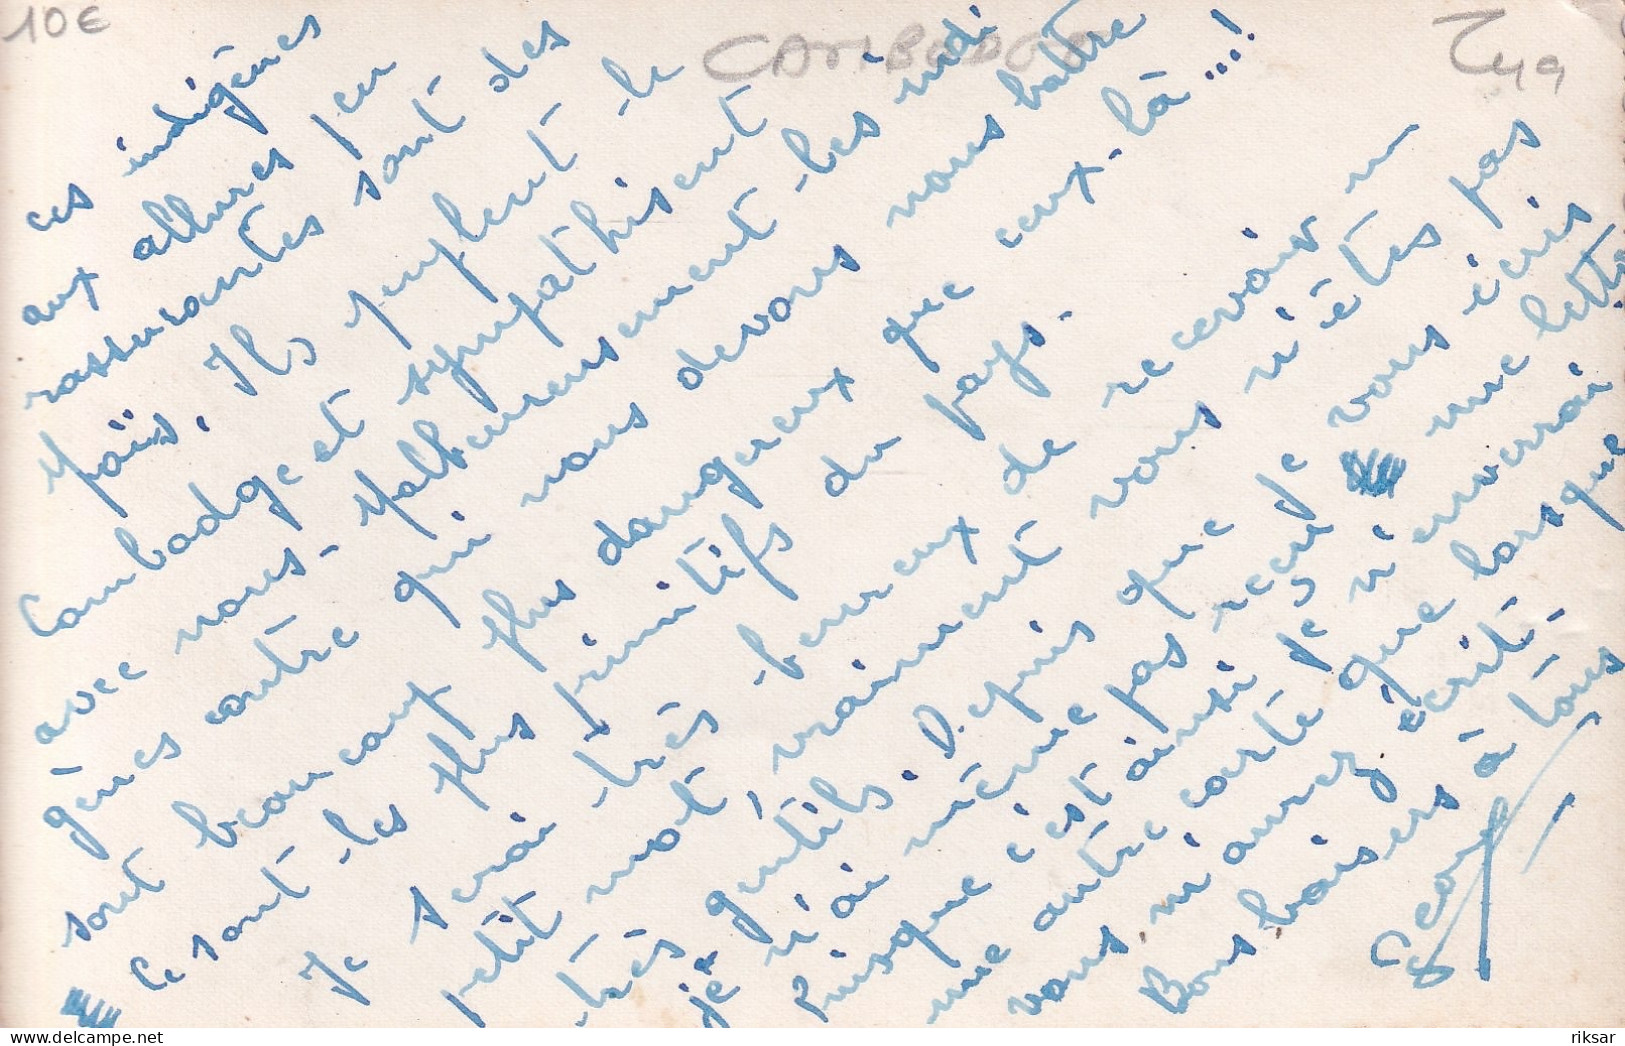 10€
CAMBODGE
ces indigènes
aux allures peu
rassurantes sont des
Moïs. Ils peuplent le
Cambodge et sympathisent
avec nous. Malheureusement les indi
gènes contre qui nous devons nous battre
sont beaucoup plus dangereux que ceux-là...!
Ce sont les plus primitifs du pays.
Je serai très heureux de recevoir un
petit mot, vraiment vous n'êtes pas
très gentils. Depuis que je vous écris
je n'ai même pas reçu une lettre
Puisque c'est ainsi je n'enverrai
une autre carte que lorsque
vous m'aurez écrit.
Bons baisers à tous
riksar